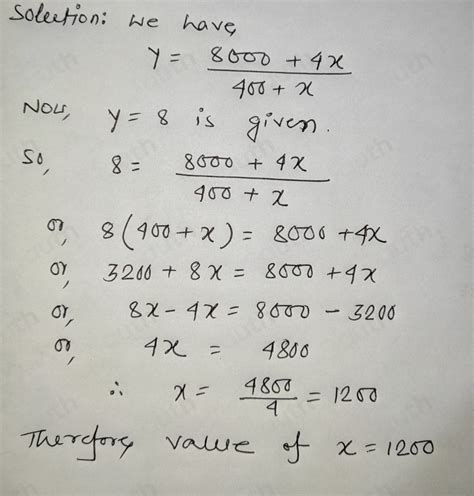 Solution: We have,
y = (8000 + 4x) / (400 + x)
Now, y = 8 is given.
So, 8 = (8000 + 4x) / (400 + x)
or, 8(400 + x) = 8000 + 4x
or, 3200 + 8x = 8000 + 4x
or, 8x - 4x = 8000 - 3200
or, 4x = 4800
∴ x = 4800 / 4 = 1200
Therefore, value of x = 1200